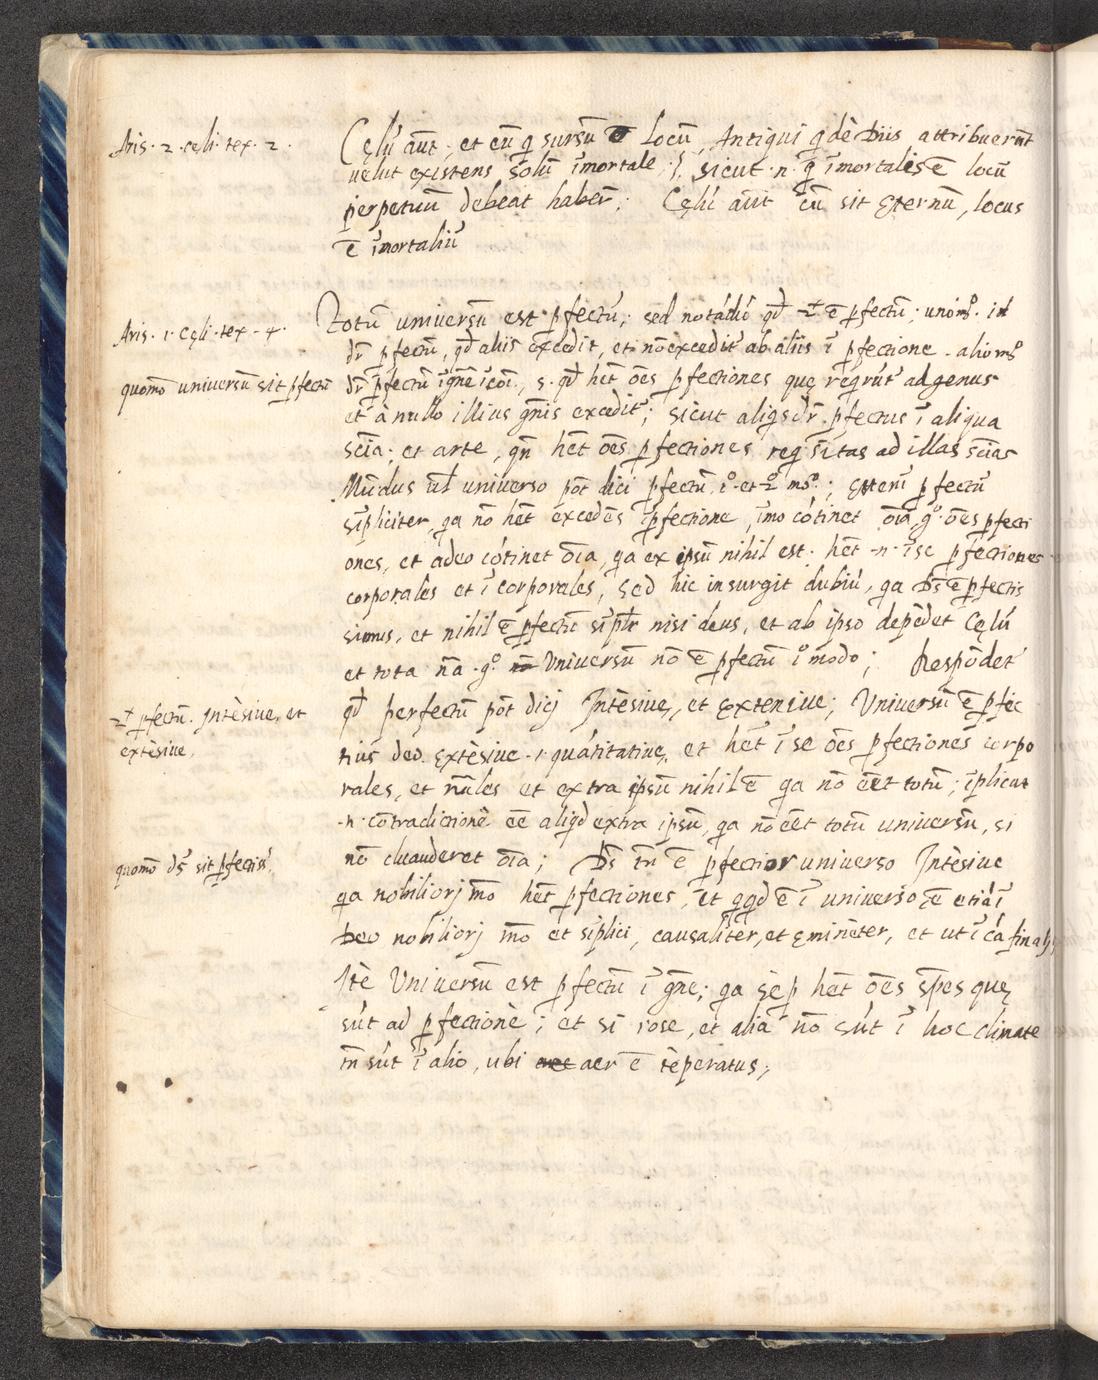 Aris. 2. cęli. tex. 2.
Cęlũ aũt, et eũ q̃ sursũ ẽ locũ, Antiqui q̃dẽ Diis attribuerũt
uelut existens solũ ĩmortale; s. sicut .n. q̃ ĩmortalis ẽ locũ
perpetuũ debeat haber̃; Cęlũ aũt cũ sit ęternũ, locus
ẽ ĩmortaliũ
Aris. 1. cęli. tex. 4.
Totũ uniuersũ est ꝑfectũ; sed notãdũ qđ 2r̃ ẽ ꝑfectũ; uno mº. id
dr̃ ꝑfectũ, qđ aliis excedit, et nõ excedit' ab aliis ĩ ꝑfectione. alio mº
quomõ uniuersũ sit ꝑfectũ
dr̃ ꝑfectũ ĩ gñe ĩ cõi, s. qđ hẽt oẽs ꝑfectiones quę reqrũt' ad genus
et à nullo illius gñis excedit'; sicut aliqs dr̃ ꝑfectus ĩ aliqua
sciã; et arte, qñ hẽt oẽs ꝑfectiones reqsitas ad illas sciãs
Mũdus ũl uniuerso põt dici ꝑfectũ 1º. et 2º mº; ętenĩ ꝑfectũ
sĩpliciter, qa nõ hẽt excedẽs ĩ ꝑfectione, ĩmo cõtinet oĩa, gº. oẽs ꝑfecti
ones, et adeo cõtinet oĩa, qa ex ipsũ nihil est. hẽt .n. ĩ se ꝑfectiones
corporales et ĩcorporales, Sed hic insurgit dubiũ, qa Ds̃ ẽ ꝑfectis
simus, et nihil ẽ ꝑfectũ sĩplr̃ nisi deus, et ab ipso depẽdet Cęlũ
et tota nã. gº Uniuersũ nõ ẽ ꝑfectũ 1º modo; Respõdet'
2r̃ ꝑfectũ. Intẽsiue, et
extẽsiue.
qđ perfectũ põt dicj Intẽsiue, et Extensiue; Uniuersũ ẽ ꝑfec
tius deo Extẽsiue .i. quãtitatiue, et hẽt ĩ se oẽs ꝑfectiones corpo
rales, et nãles et extra ipsũ nihil ẽ qa nõ eẽt totũ; ĩplicat
.n. cõtradictionẽ eẽ aliqđ extra ipsũ, qa nõ eẽt totũ uniuersũ, si
quomõ ds̃ sit ꝑfectiss.
nõ clauderet oĩa; Ds̃ tñ ẽ ꝑfectior uniuerso Intẽsiue
qa nobiliorj mõ hẽt ꝑfectiones, et qqđ ẽ ĩ uniuerso, ẽ etiã ĩ
Deo nobiliorj mõ et sĩplici, causaliter, et eminẽter, et ut ĩ cã finalj
Itẽ Uniuersũ est ꝑfectũ ĩ gñe; qa sẽp hẽt oẽs spẽs quę
sũt ad ꝑfectionẽ; et si rose, et alia nõ sũt ĩ hoc climate
tñ sũt ĩ alio, ubi aer ẽ tẽperatus;